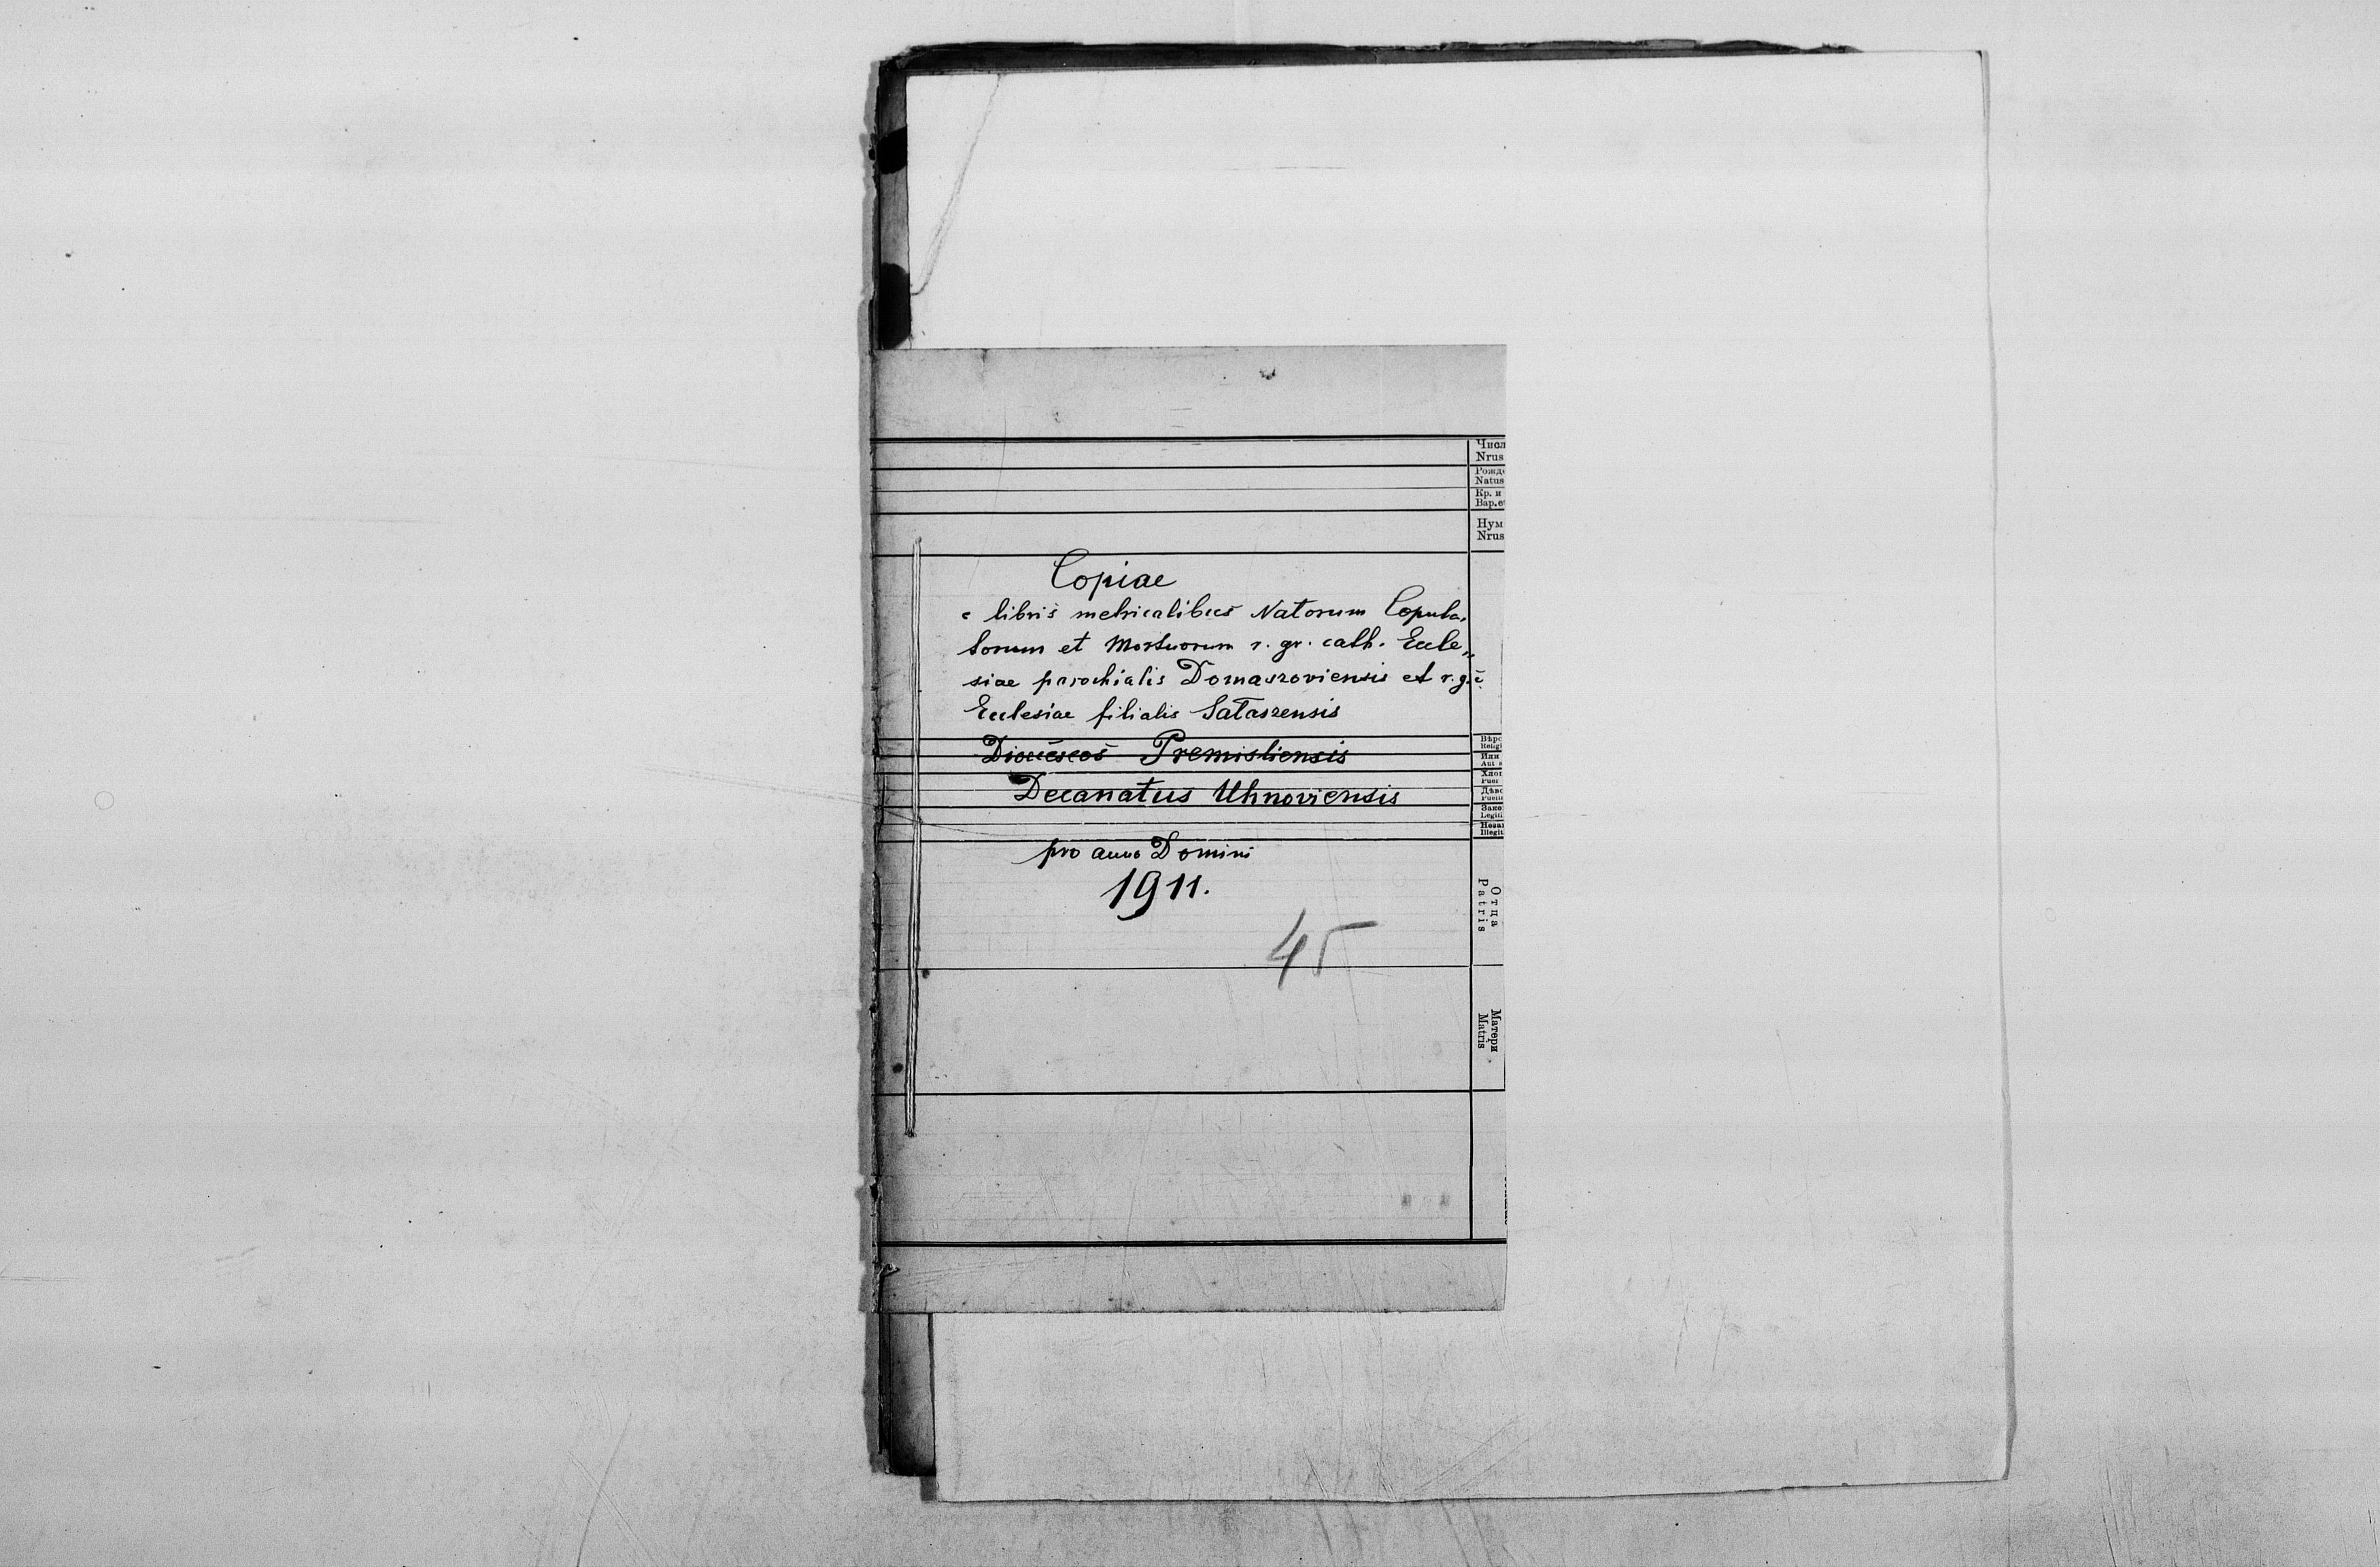 Числ
Nrus
Рожде
Natus
Кр. и
Bap.et
Нум
Nrus
Copiae
e libris metricalibus Natorum Copula„
torum et Mortuorum r. gr. cath. Eccle„
siae parochialis Domaszoviensis et r.g.c.
Ecclesiae filialis Sałaszensis
Dioeceseos Premisliensis
Decanatus Uhnoviensis
pro anno Domini
1911.
45
Вѣро
Relig
Или
Aut
Хлоп
Puer
Дѣво
Puella
Зако
Legiti
Незак
Illegit
Отца
Patris
Матери
Matris